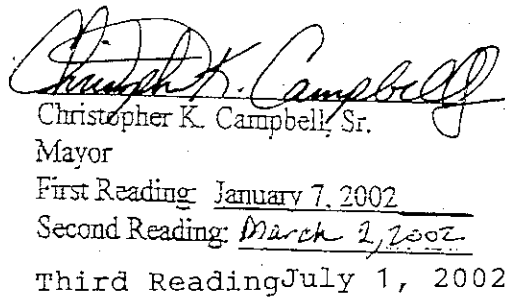 Christopher K. Campbell
Christopher K. Campbell, Sr.
Mayor
First Reading: January 7, 2002
Second Reading: March 2, 2002
Third ReadingJuly 1, 2002